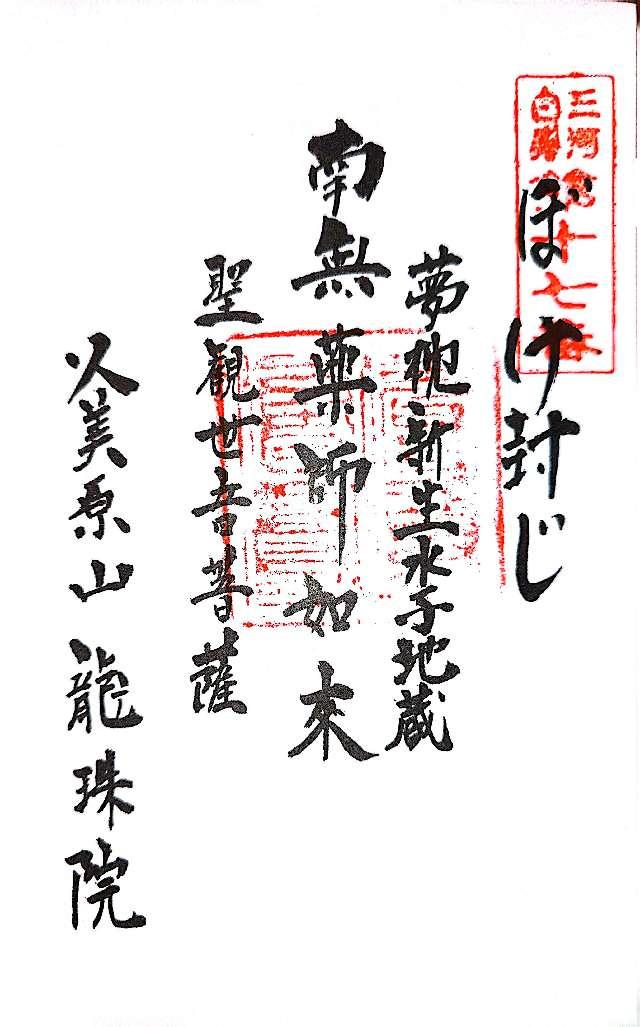 三河
白
十七番
ぼけ封じ
夢枕新生水子地蔵
南無薬師如來
聖観世音菩薩
久美原山 龍珠院